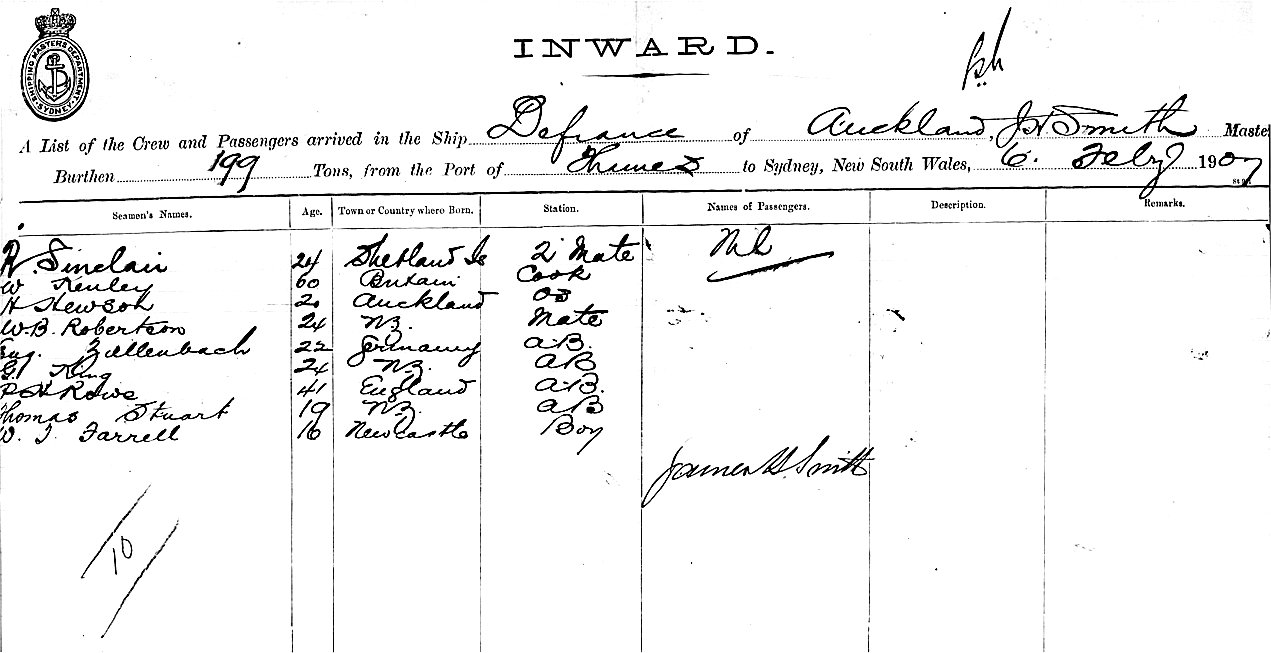 SHIPPING MASTERS DEPARTMENT. SYDNEY.
INWARD.
A List of the Crew and Passengers arrived in the Ship Defiance of Auckland, J H Smith Maste
Burthen 199 Tons, from the Port of Thames to Sydney, New South Wales, 6. Feby 1907
Seamen's Names. Age. Town or Country where Born. Station. Names of Passengers. Description. Remarks.
R. Sinclair 24 Shetland Is 2 Mate Nil
W Henley 60 Britain Cook
H Hewson 20 Auckland OS
W.B. Robertson 24 NZ. Mate
Eug. Zellenbach 22 Germany A.B.
G. King 24 NZ. AB
P H Rowe 41 England A.B.
Thomas Stuart 19 NZ. AB
W. J. Farrell 16 Newcastle Boy
James H. Smith
10